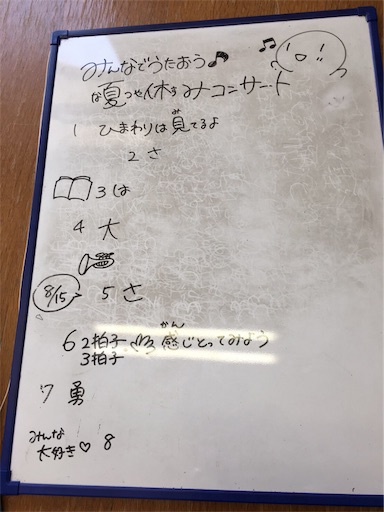 みんなでうたおう♪
夏休みコンサート
1 ひまわりは見てるよ
2 さ
3 は
4 大
8/15 5 さ
6 2拍子 3拍子 感じとってみよう
7 勇
みんな大好き♡ 8